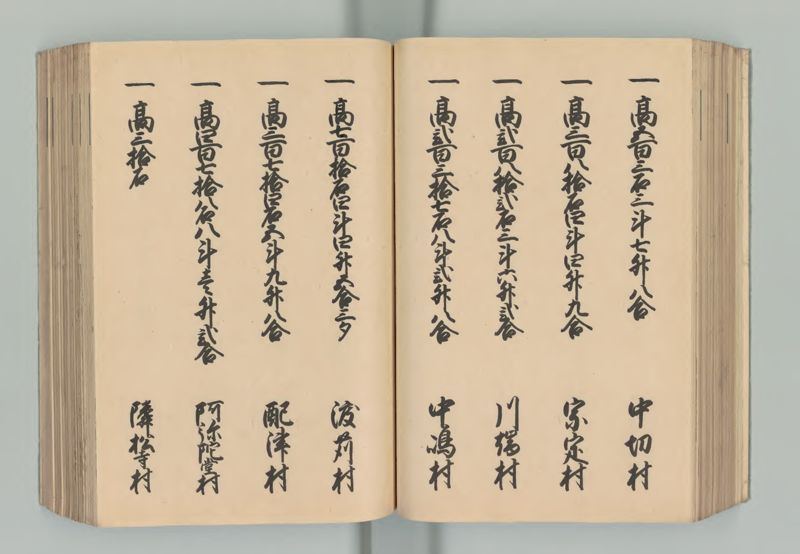 一 高五百三石三斗七升八合 中切村
一 高三百八拾石四斗四升九合 宗定村
一 高弐百八拾弐石三斗六升弐合 川端村
一 高弐百三拾七石八斗弐升八合 中嶋村
一 高七百拾石四斗四升五合三夕 渡苅村
一 高三百七拾四石五斗九升八合 配津村
一 高四百七拾八石八斗壱升弐合 阿弥陀堂村
一 高三拾石 隣松寺村